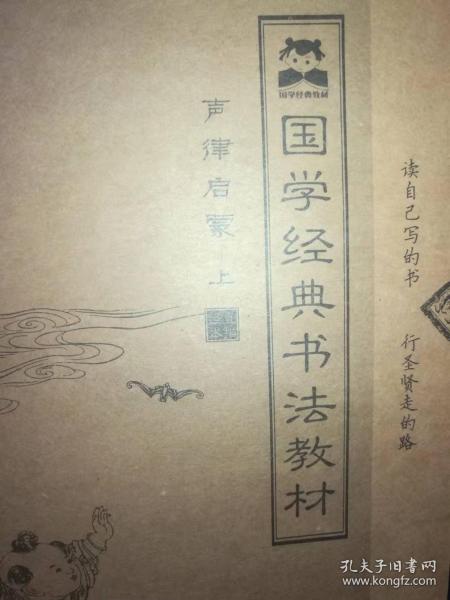 读自己写的书 行圣贤走的路
国学经典教材
国学经典书法教材
声律启蒙 上
孔夫子旧书网
www.kongfz.com